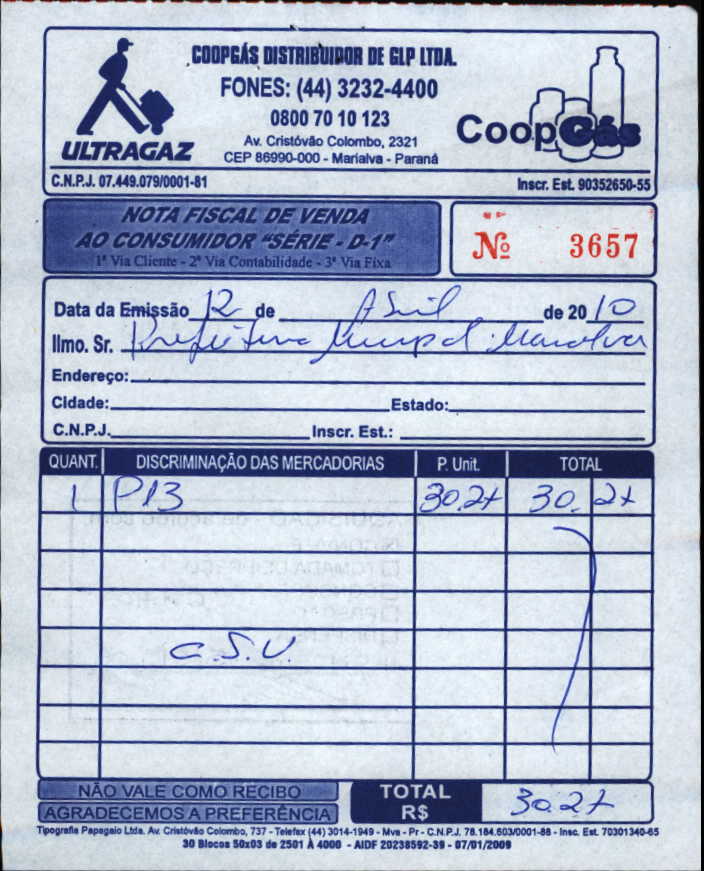 COOPGÁS DISTRIBUIDOR DE GLP LTDA.
FONES: (44) 3232-4400
0800 70 10 123
Av. Cristóvão Colombo, 2321
CEP 86990-000 - Marialva - Paraná
ULTRAGAZ
CoopGás
C.N.P.J. 07.449.079/0001-81
Inscr. Est. 90352650-55
NOTA FISCAL DE VENDA
AO CONSUMIDOR "SÉRIE - D-1"
1ª Via Cliente - 2ª Via Contabilidade - 3ª Via Fixa
Nº 3657
Data da Emissão 12 de Abril de 2010
Ilmo. Sr. Prefeitura Municipal Marialva
Endereço:
Cidade: Estado:
C.N.P.J. Inscr. Est.:
QUANT. DISCRIMINAÇÃO DAS MERCADORIAS P. Unit. TOTAL
1 P13 30.27 30.27
C.S.U.
NÃO VALE COMO RECIBO
AGRADECEMOS A PREFERÊNCIA
TOTAL R$ 30.27
Tipografia Papagaio Ltda. Av. Cristóvão Colombo, 737 - Telefax (44) 3014-1949 - Mva - Pr - C.N.P.J. 78.184.603/0001-88 - Insc. Est. 70301340-65
30 Blocos 50x03 de 2501 À 4000 - AIDF 20238592-39 - 07/01/2009